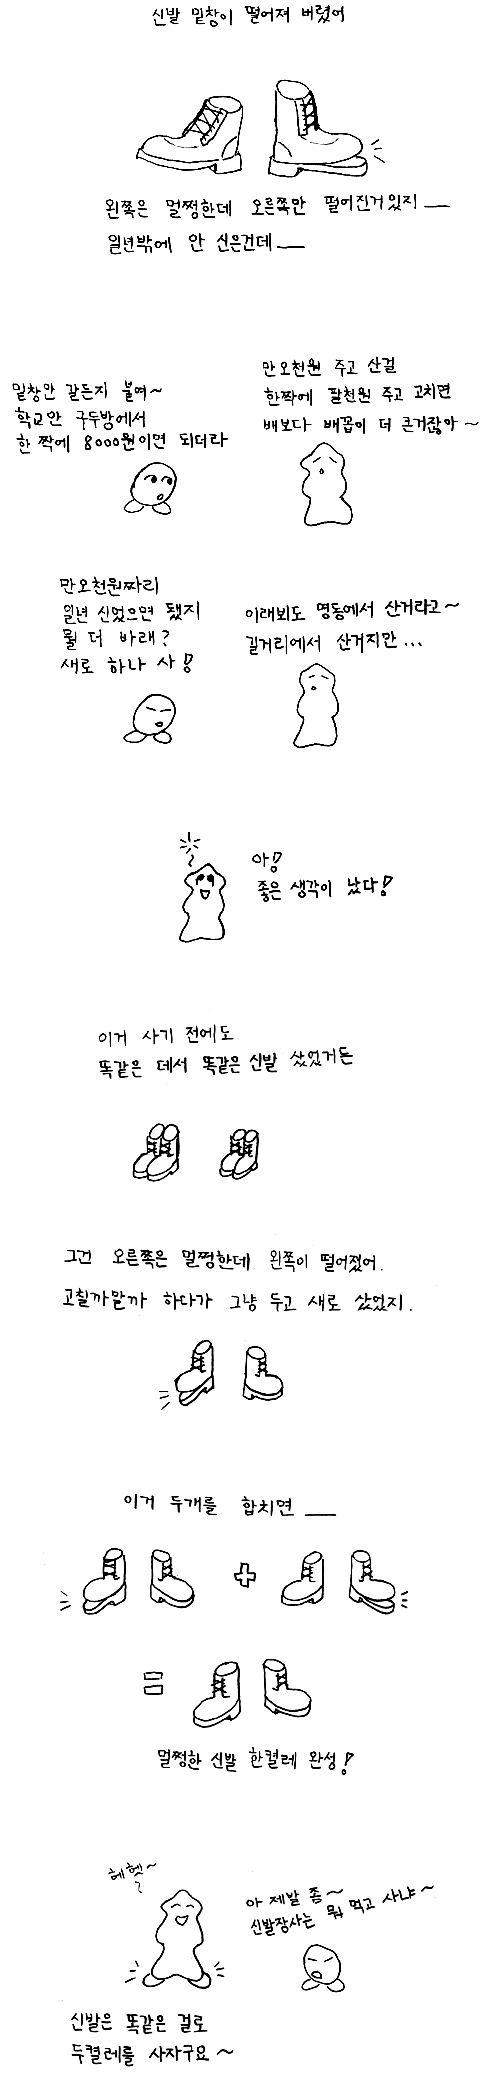 신발 밑창이 떨어져 버렸어
왼쪽은 멀쩡한데 오른쪽만 떨어진거 있지 __
일년밖에 안 신은건데 __
밑창만 갈든지 붙여~
학교안 구두방에서
한 짝에 8000원이면 되더라
만오천원 주고 산걸
한짝에 팔천원 주고 고치면
배보다 배꼽이 더 큰거잖아~
만오천원짜리
일년 신었으면 됐지
뭘 더 바래?
새로 하나 사!
이래뵈도 명동에서 산거라고~
길거리에서 산거지만...
아!
좋은 생각이 났다!
이거 사기 전에도
똑같은 데서 똑같은 신발 샀었거든
그건 오른쪽은 멀쩡한데 왼쪽이 떨어졌어.
고칠까말까 하다가 그냥 두고 새로 샀었지.
이거 두개를 합치면 __
+
=
멀쩡한 신발 한켤레 완성!
헤헷~
아 제발 좀~
신발장사는 뭐 먹고 사냐~
신발은 똑같은 걸로
두켤레를 사자구요~